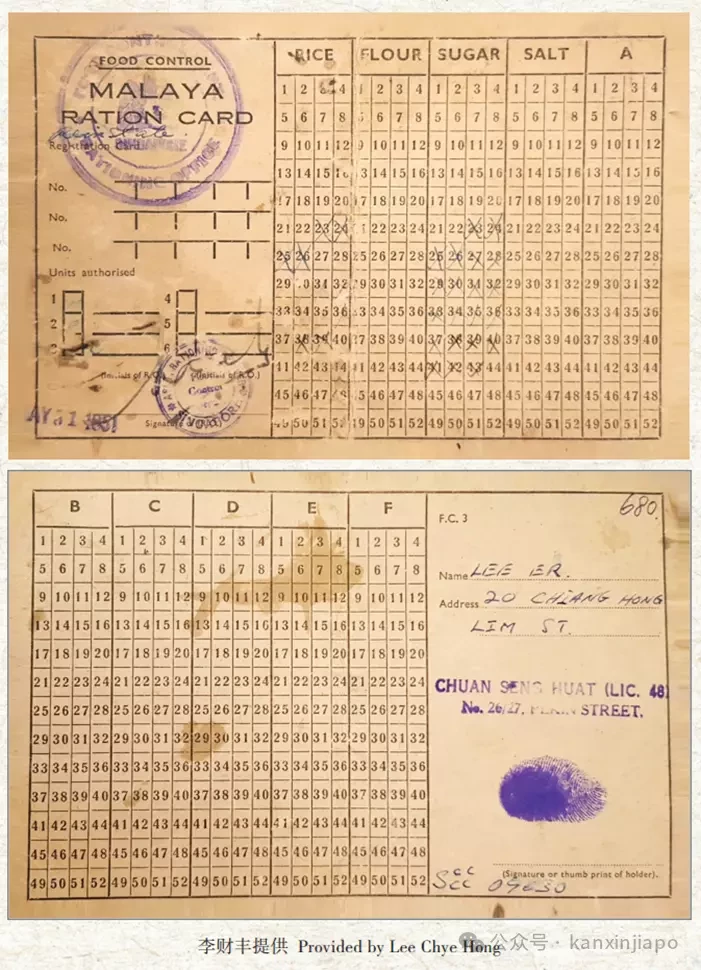 FOOD CONTROL
MALAYA
RATION CARD
Registration
No.
No.
No.
Units authorised
1 4
2 5
3 6
RICE FLOUR SUGAR SALT A
1 2 3 4 1 2 3 4 1 2 3 4 1 2 3 4
5 6 7 8 5 6 7 8 5 6 7 8 5 6 7 8 5 6 7 8
9 10 11 12 9 10 11 12 9 10 11 12 9 10 11 12 9 10 11 12
13 14 15 16 13 14 15 16 13 14 15 16 13 14 15 16
17 18 19 20 17 18 19 20 17 18 19 20 17 18 19 20 17 18 19 20
21 22 23 24 21 22 23 24 21 22 23 24 21 22 23 24 21 22 23 24
25 26 27 28 25 26 27 28 25 26 27 28 25 26 27 28 25 26 27 28
29 30 31 32 29 30 31 32 29 30 31 32 29 30 31 32 29 30 31 32
33 34 35 36 33 34 35 36 33 34 35 36 33 34 35 36 33 34 35 36
37 38 39 40 37 38 39 40 37 38 39 40 37 38 39 40 37 38 39 40
41 42 43 44 41 42 43 44 41 42 43 44 41 42 43 44 41 42 43 44
45 46 47 48 45 46 47 48 45 46 47 48 45 46 47 48 45 46 47 48
50 51 52 49 50 51 52 49 50 51 52 49 50 51 52 49 50 51 52
B C D E F
1 2 3 4 1 2 3 4 1 2 3 4 1 2 3 4 1 2 3 4
5 6 7 8 5 6 7 8 5 6 7 8 5 6 7 8 5 6 7 8
9 10 11 12 9 10 11 12 9 10 11 12 9 10 11 12 9 10 11 12
13 14 15 16 13 14 15 16 13 14 15 16 13 14 15 16 13 14 15 16
17 18 19 20 17 18 19 20 17 18 19 20 17 18 19 20 17 18 19 20
21 22 23 24 21 22 23 24 21 22 23 24 21 22 23 24 21 22 23 24
25 26 27 28 25 26 27 28 25 26 27 28 25 26 27 28 25 26 27 28
29 30 31 32 29 30 31 32 29 30 31 32 29 30 31 32 29 30 31 32
33 34 35 36 33 34 35 36 33 34 35 36 33 34 35 36 33 34 35 36
37 38 39 40 37 38 39 40 37 38 39 40 37 38 39 40 37 38 39 40
41 42 43 44 41 42 43 44 41 42 43 44 41 42 43 44 41 42 43 44
45 46 47 48 45 46 47 48 45 46 47 48 45 46 47 48 45 46 47 48
49 50 51 52 49 50 51 52 49 50 51 52 49 50 51 52 49 50 51 52
680.
F.C. 3
Name LEE ER.
Address 20 CHIANG HONG
LIM ST.
CHUAN SENG HUAT (LIC. 48)
No. 26/27, PEKIN STREET.
(Signature or thumb print of holder).
李财丰提供 Provided by Lee Chye Hong
公众号 · kanxinjiapo